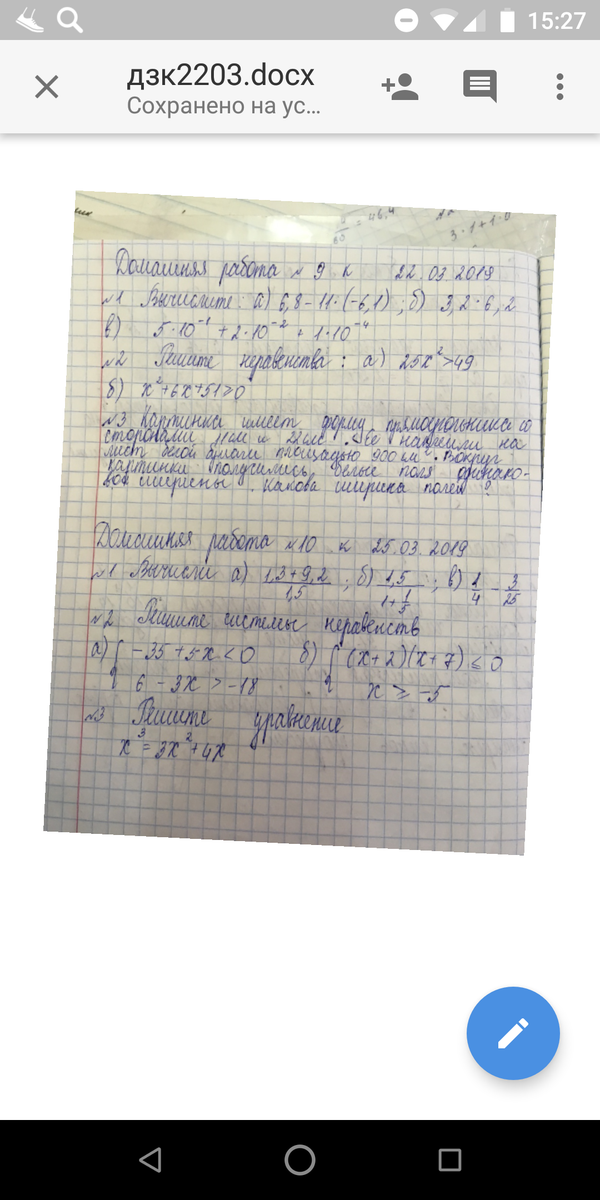 15:27
дзк2203.docx
Сохранено на ус...
= 46.4
3·1+1·0
Домашняя работа № 9 к 22.03.2019
№1 Вычислите: а) 6,8-11·(-6,1) ; б) 3,2·6,2
в) 5·10⁻¹+2·10⁻²+1·10⁻⁴
№2 Решите неравенства: а) 25x²>49
б) x²+6x+51≥0
№3 Картинка имеет форму прямоугольника со
сторонами 11см и 21см. Её наклеили на
лист белой бумаги площадью 900 см². Вокруг
картинки получились белые поля одинако-
вой ширины. Какова ширина полей?
Домашняя работа №10 к 25.03.2019
№1 Вычисли а) (1,3+9,2)/1,5 ; б) 1,5/(1+1/5) ; в) 1/4 - 3/25
№2 Решите системы неравенств
а) { -35+5x<0 б) { (x+2)(x+7)≤0
6-3x>-18 x≥-5
№3 Решите уравнение
x³=3x²+4x